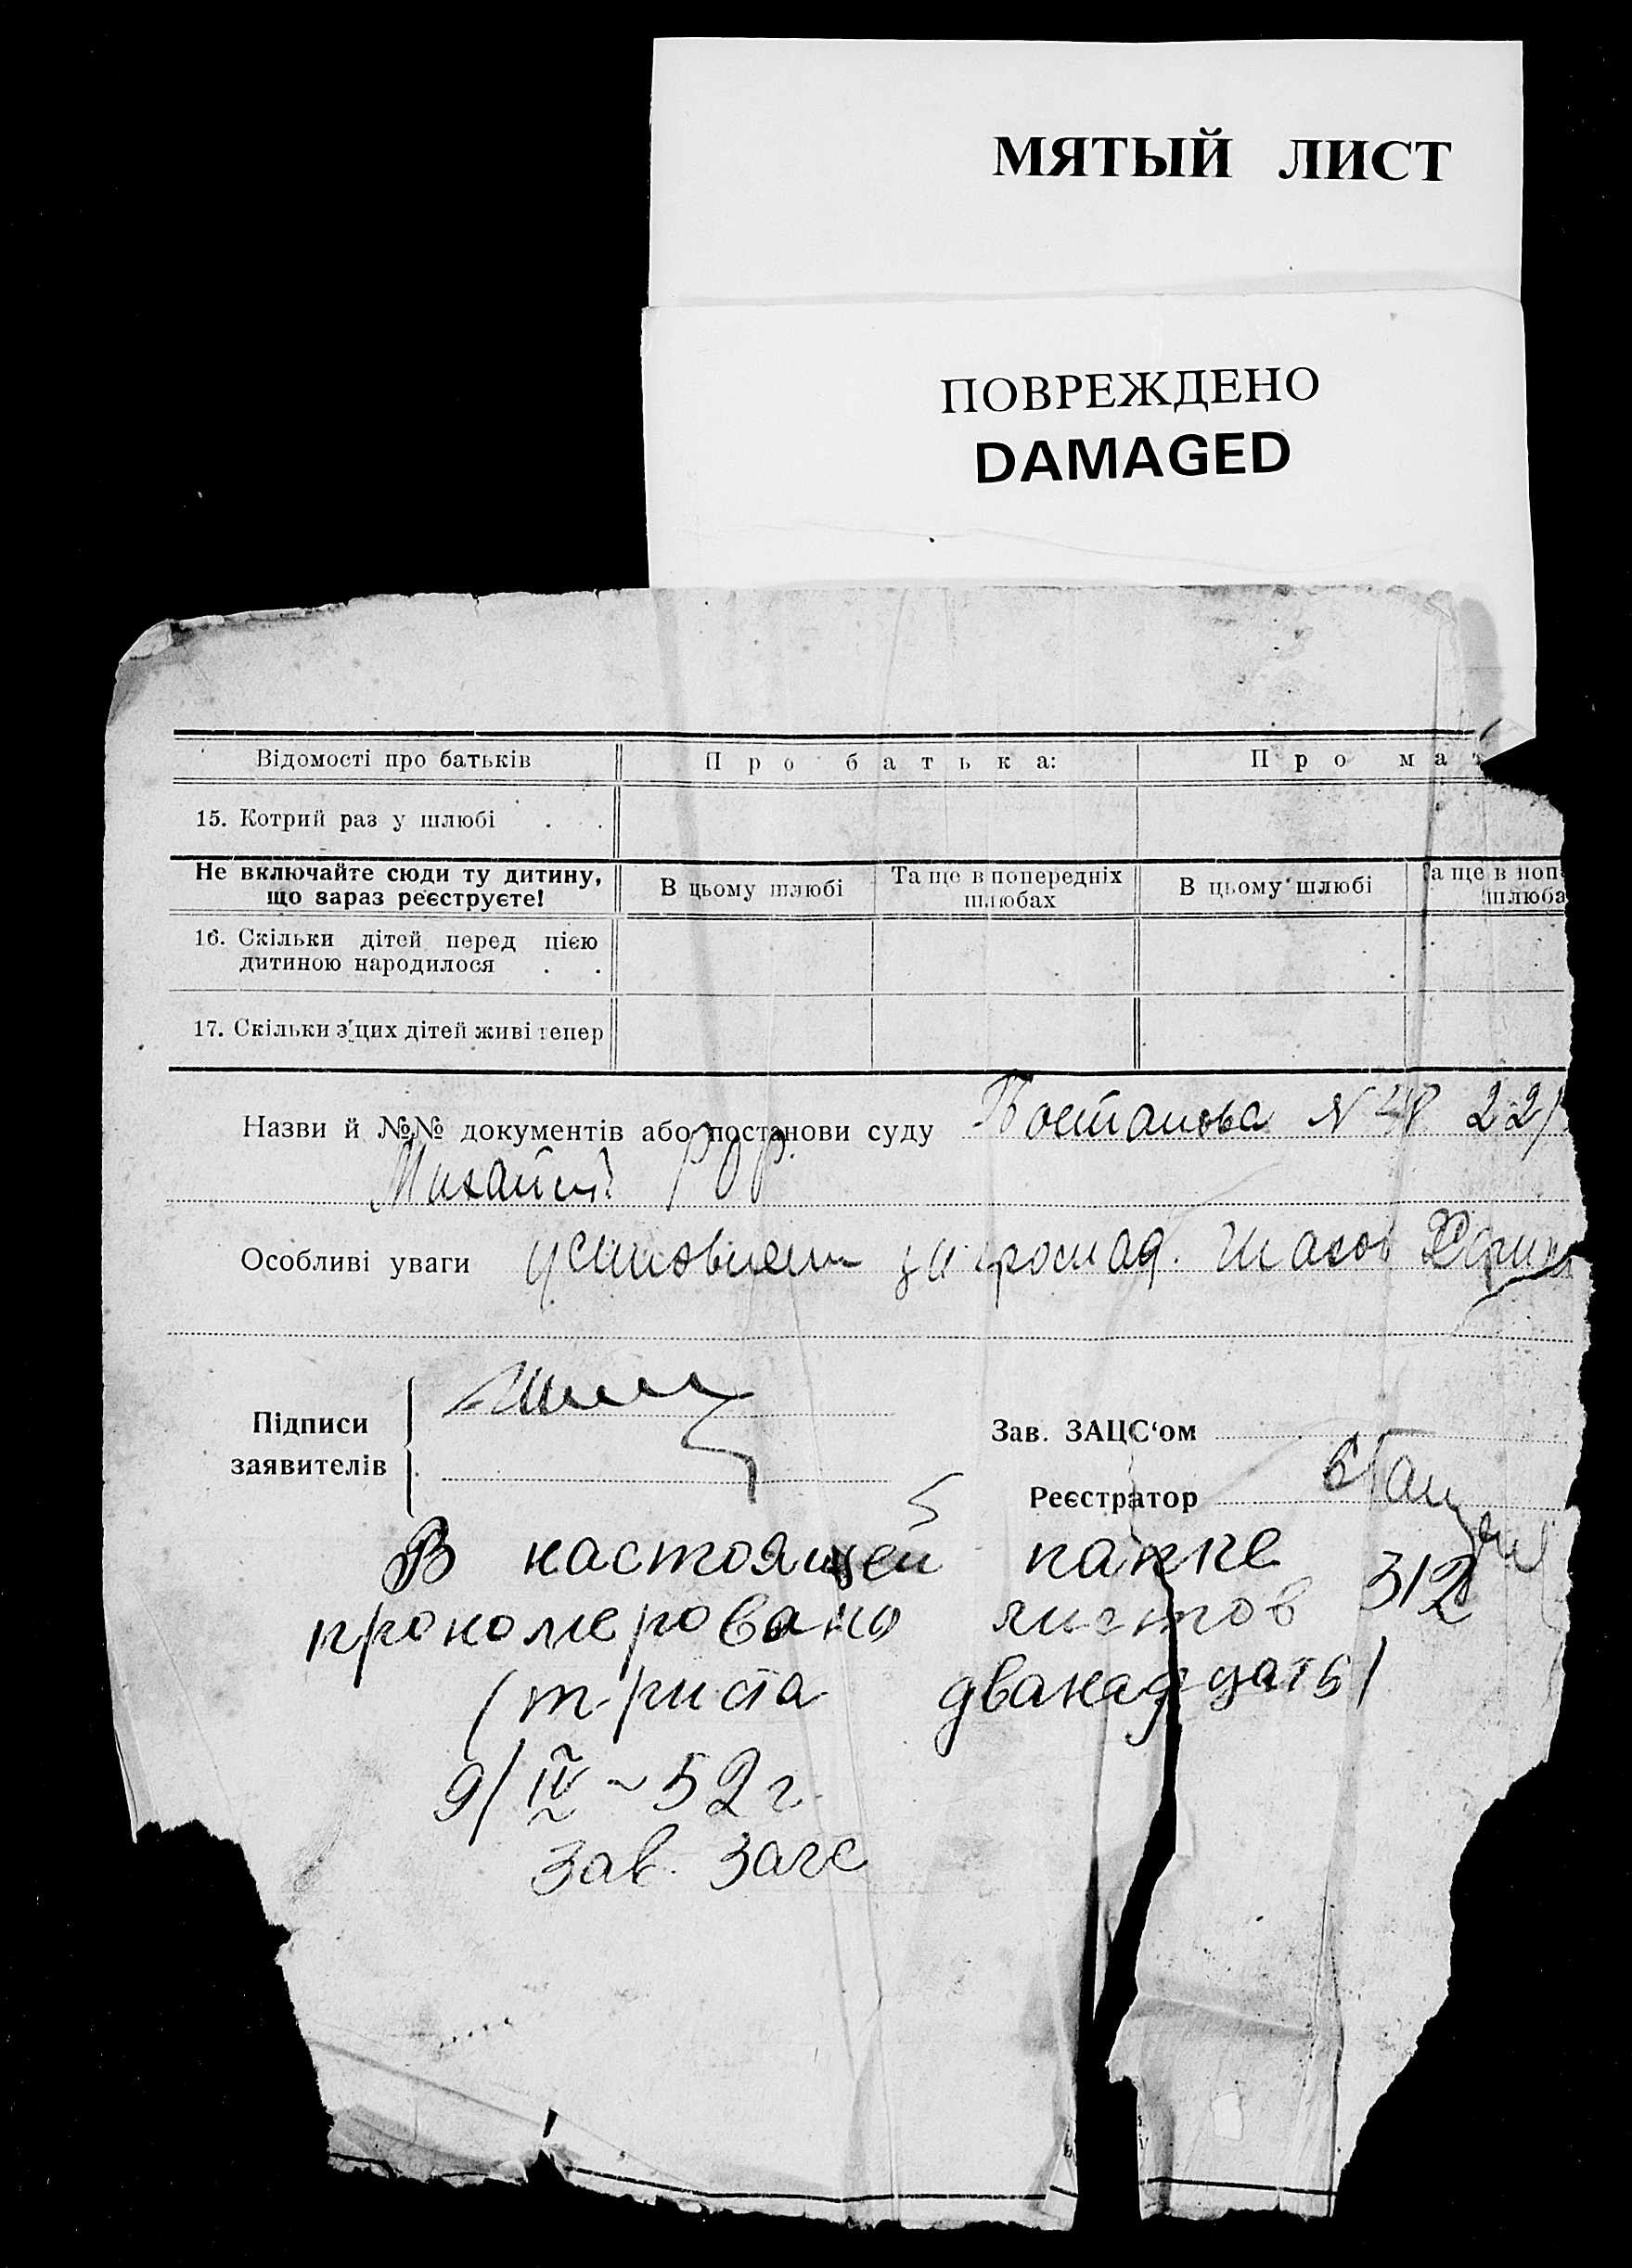 МЯТЫЙ ЛИСТ
ПОВРЕЖДЕНО
DAMAGED
Відомості про батьків
Про батька:
Про мат
15. Котрий раз у шлюбі . .
Не включайте сюди ту дитину,
що зараз реєструєте!
В цьому шлюбі
Та ще в попередніх
шлюбах
В цьому шлюбі
а ще в поп
шлюба
16. Скільки дітей перед цією
дитиною народилося . .
17. Скільки з'цих дітей живі тепер
Назви й №№ документів або постанови суду Постанова N 22/
Особливі уваги
Підписи
заявителів
Зав. ЗАЦС‘ом
Реєстратор
В настоящей папке
прономеровано листов 312
(триста дванадцать)
9/IV - 52 г.
Зав. Загс